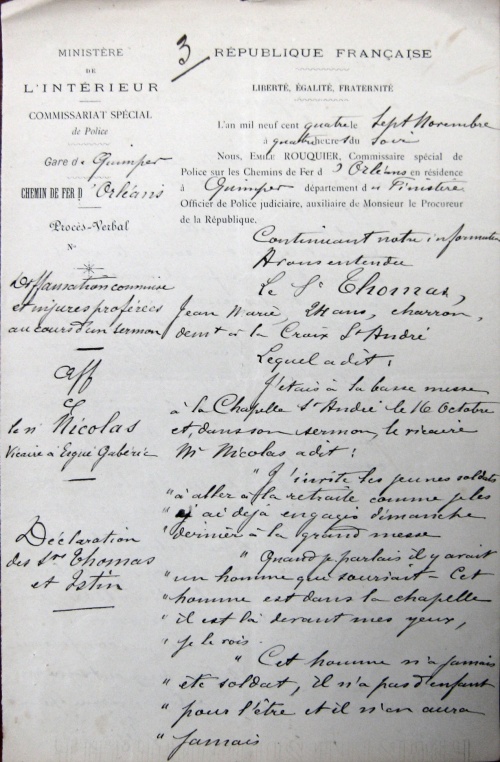 3
MINISTÈRE
DE
L'INTÉRIEUR
COMMISSARIAT SPÉCIAL
de Police
Gare de Quimper
CHEMIN DE FER D'Orléans
Procès-Verbal
N°
Diffamation commise
et injures proférées
au cours d'un sermon
Aff
le né Nicolas
Vicaire à Ergué Gabéric
Déclaration
des Srs Thomas
et Istin
RÉPUBLIQUE FRANÇAISE
LIBERTÉ, ÉGALITÉ, FRATERNITÉ
L'an mil neuf cent quatre le Sept Novembre
à quatre heures du soir
Nous, EMILE ROUQUIER, Commissaire spécial de
Police sur les Chemins de Fer d'Orléans en résidence
à Quimper département du Finistère
Officier de Police judiciaire, auxiliaire de Monsieur le Procureur
de la République.
Continuant notre information
Avons entendu
Le Sr Thomas,
Jean Marie, 24 ans, charron,
demt à la Croix St André
Lequel a dit :
J'étais à la basse messe
à la Chapelle St André le 16 Octobre
et, dans son sermon, le vicaire
Mr Nicolas a dit :
" J'invite les jeunes soldats
" à aller à la retraite comme je les
" y ai déjà engagés dimanche
" dernier à la grand messe
" Quand je parlais il y avait
" un homme que souriait - Cet
" homme est dans la chapelle
" il est là devant mes yeux,
" je le vois.
" Cet homme n'a jamais
" été soldat, il n'a pas d'enfant
" pour l'être et il n'en aura
" jamais